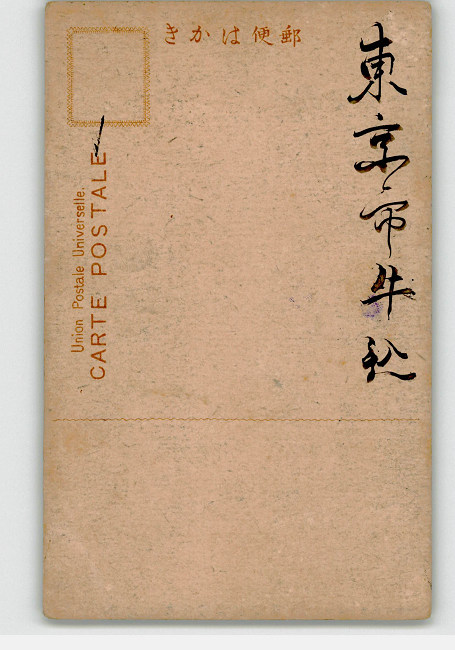 郵便はかき
東京市牛込
Union Postale Universelle.
CARTE POSTALE